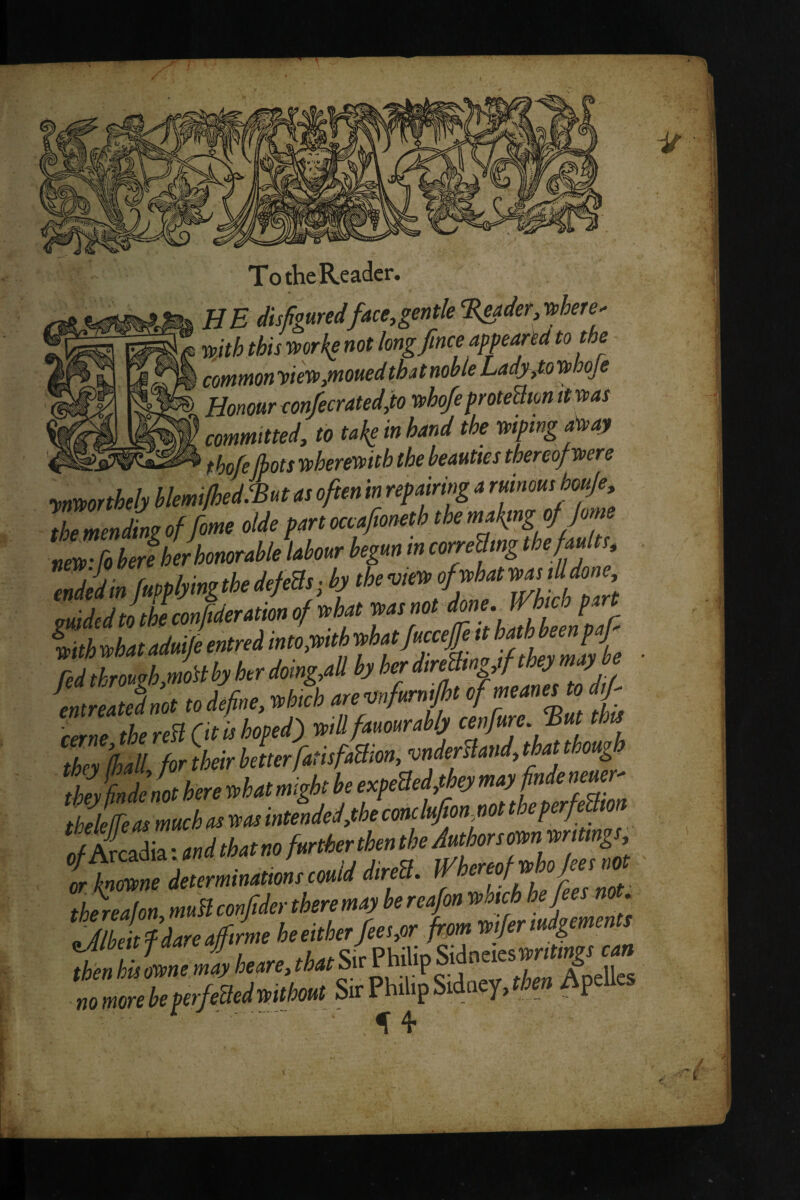 To the Reader.
THE disfigured face, gentle Reader, where-
with this worke not long ſince appeared to the
common view, moued that noble Lady, to whoſe
Honour conſecrated, to whoſe protection it was
committed, to take in hand the wiping away
thoſe ſpots wherewith the beauties thereof were
vnworthely blemiſhed. But as often in repairing a ruinous houſe,
the mending of ſome olde part occaſioneth the making of ſome
new: ſo here her honorable labour begun in correcting the faults,
ended in ſupplying the defects; by the view of what was ill done,
guided to the conſideration of what was not done. Which part
with what aduiſe entred into, with what ſucceſſe it hath been paſ-
ſed through, moſt by her doing, all by her directing, if they may be
entreated not to define, which are vnfurniſht of meanes to diſ-
cerne, the reſt (it is hoped) will fauourably cenſure. But this
they ſhall, for their better ſatisfaction, vnderſtand, that though
they finde not here what might be expected, they may finde neuer-
theleſſe as much as was intended, the concluſion, not the perfection
of Arcadia: and that no further then the Authors own writings,
or knowne determinations could direct. Whereof who ſees not
the reaſon, muſt conſider there may be reaſon which he ſees not.
Albeit I dare affirme he either ſees, or from wiſer iudgements
then his owne may heare, that Sir Philip Sidneies writings can
no more be perfected without Sir Philip Sidney, then Apelles
¶ 4